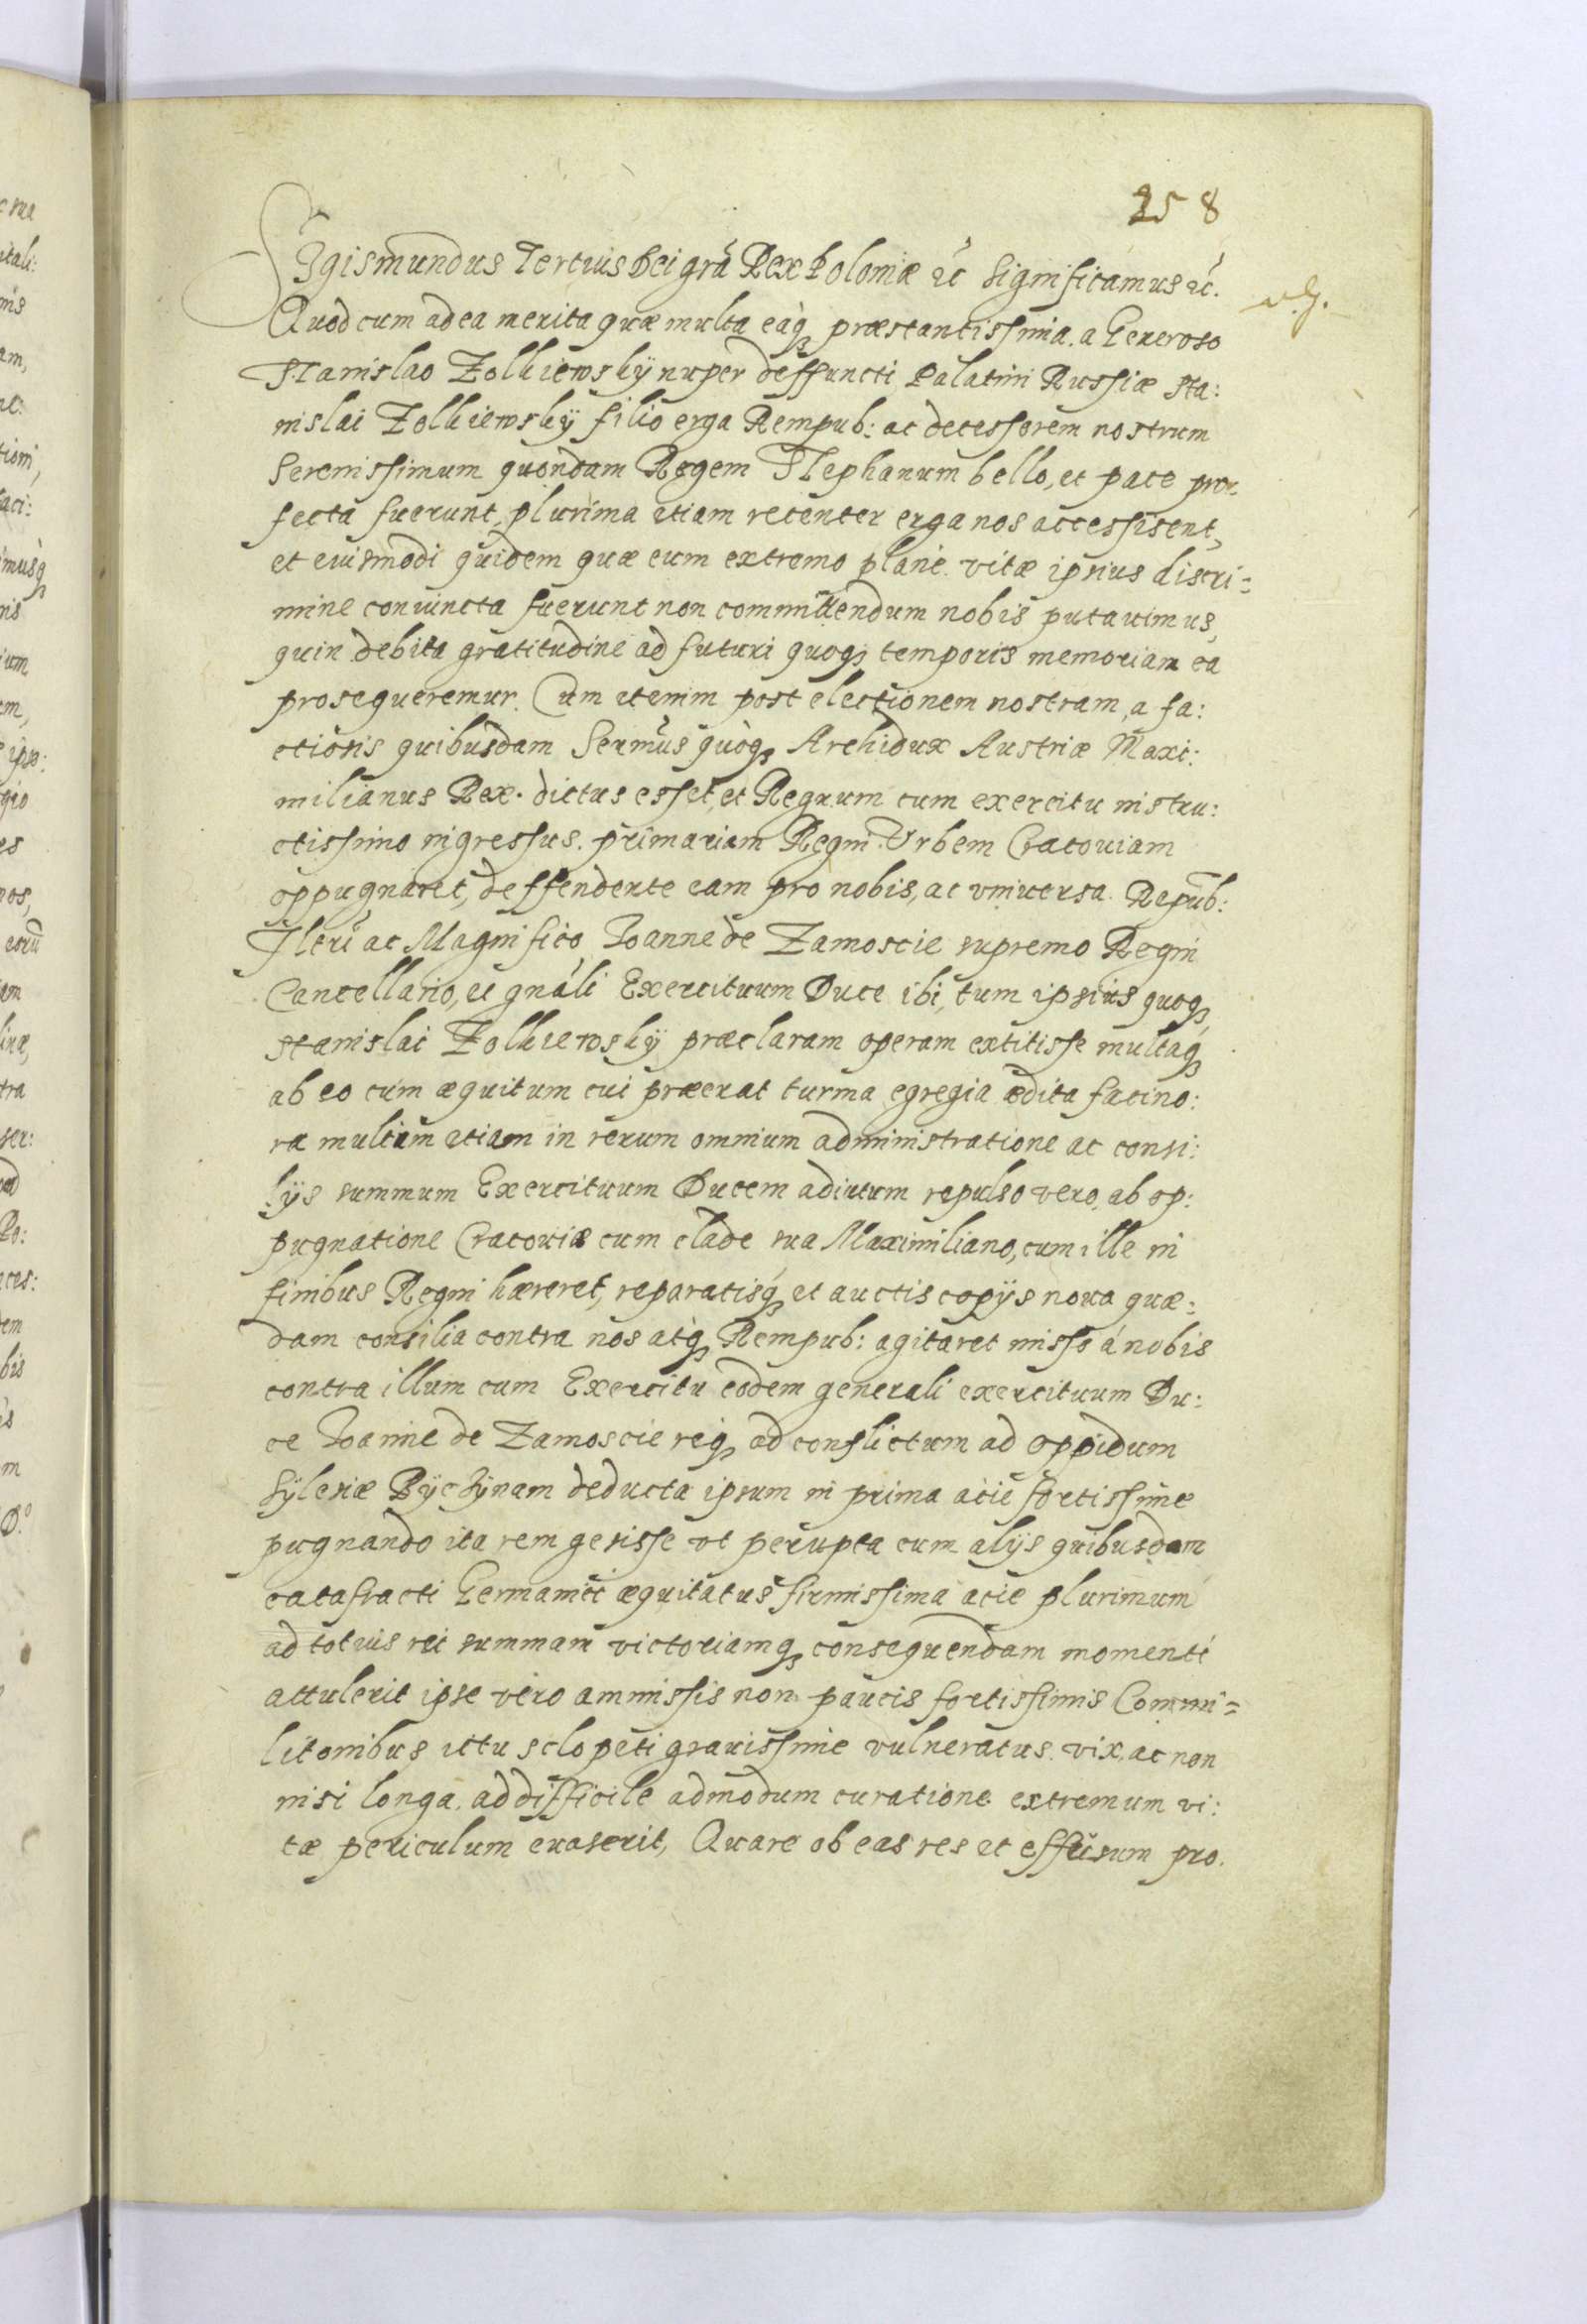 258
Sigismundus Tertius Dei gra Rex Poloniæ etc significamus etc.
Quod cum ad ea merita quæ multa eaq præstantissima a Generoso
Stanislao Zolkiewsky nuper deffuncti Palatini Russiæ Sta:
nislai Zolkiewsky filio erga Rempub: ac decessorem nostrum
Serenissimum quondam Regem Stephanum bello, et pace pro:
fecta fuerunt, plurima etiam recenter erga nos accessisent,
et euismodi quidem quæ cum extremo plane vitæ ipsius discri=
mine coniuncta fuerunt non committendum nobis putauimus,
quin debita gratitudine ad futuri quoq temporis memoriam ea
prosequeremur. Cum etenim post electionem nostram, a fa:
ctiosis quibusdam Sermus quoq Archidux Austriæ Maxi:
milianus Rex dictus esset, et Regnum cum exercitu instru:
ctissimo ingressus. primariam Regni Urbem Cracouiam
oppugnaret, deffendente eam pro nobis, ac vniuersa Repub:
Illeri ac Magnifico Joanne de Zamoscie supremo Regni
Cancellario, et gnali Exercituum Duce ibi, tum ipsius quoq
Stanislai Zolkiewsky præclaram operam extitisse multaq
ab eo cum æquitum cui præerat turma egregia ædita facino:
ra multum etiam in rerum omnium administratione ac consi:
lijs summum Exercituum Ducem adiutum repulso vero, ab op:
pugnatione Cracouiæ cum clade sua Maximiliano, cum ille in
finibus Regni hæreret, reparatisq et auctis copijs noua quæ:
dam consilia contra nos atq Rempub: agitaret misso á nobis
contra illum cum Exercitu eodem generali exercituum Du:
ce Joanne de Zamoscie req ad conflictum ad oppidum
Sylesiæ Byczynam deducta ipsum in prima acie fortissime
pugnando ita rem gesisse vt perupta cum alijs quibusdam
catafracti Germanici æquitatus firmissima acie plurimum
ad totius rei summam victoriamq consequendam momenti
attulerit ipse vero ammissis non paucis fortissimis Commi=
litonibus ictu sclopeti grauissime vulneratus. vix, ac non
nisi longa, ad difficile admodum curatione extremum vi:
tæ periculum euaserit, Quare ob eas res et effusum pro.